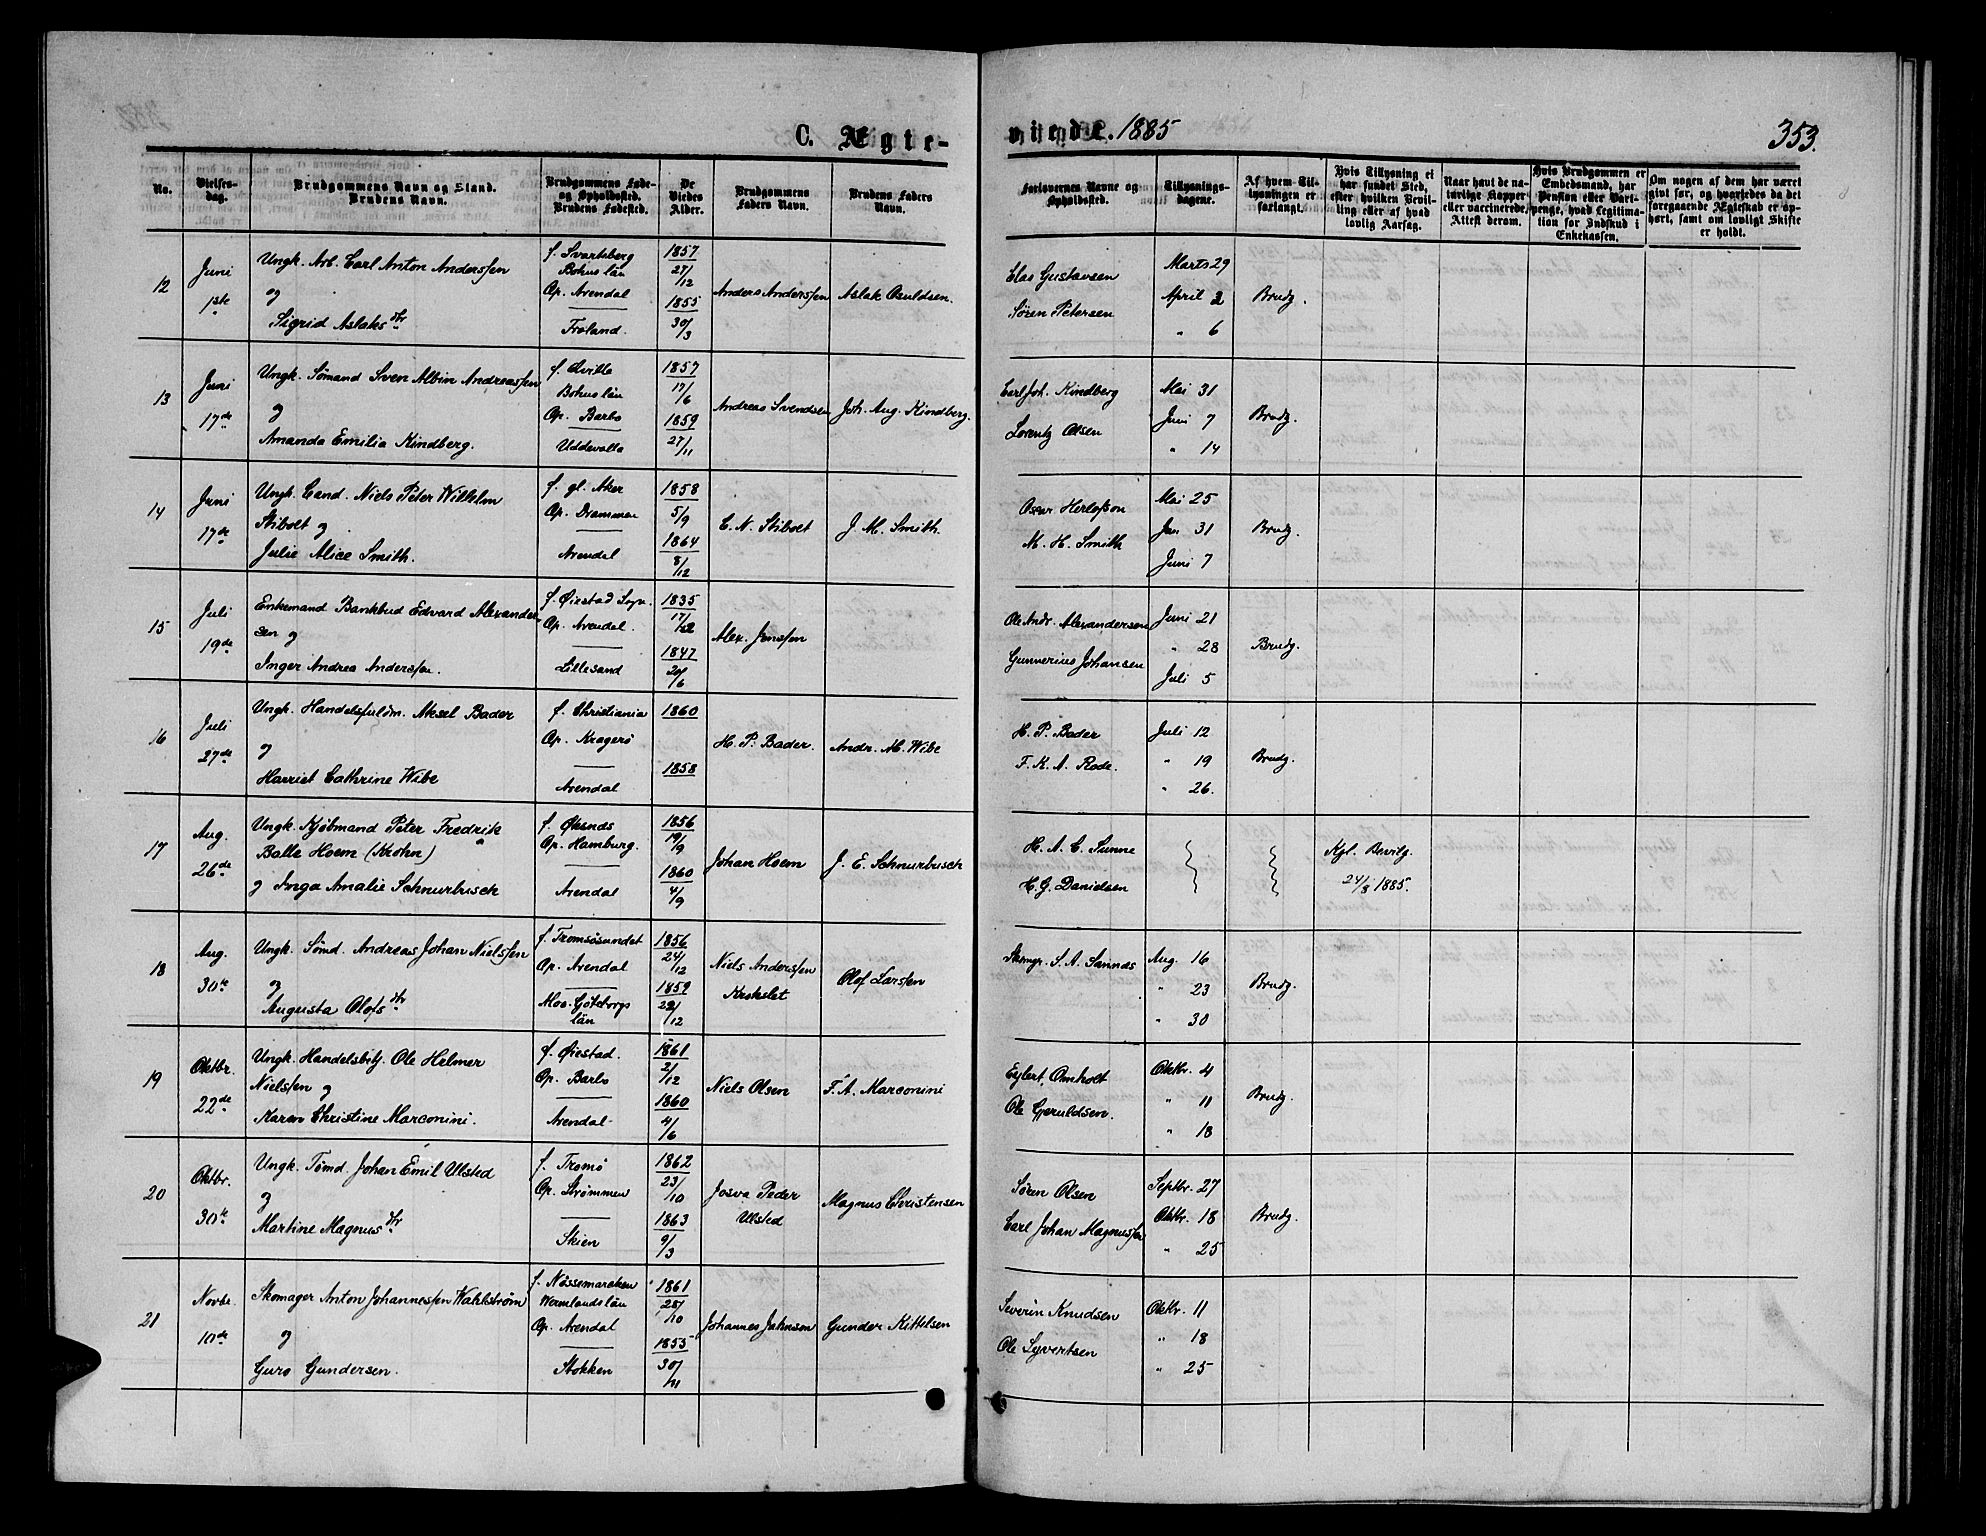 C. Ægte-
viede. 1885
353.
No.
Vielses-
dag.
Brudgommens Navn og Stand.
Brudens Navn.
Brudgommens Føde-
og Opholdssted.
Brudens Fødested.
De
Viedes
Alder.
Brudgommens
Faders Navn.
Brudens Faders
Navn.
Forlovernes Navne og
Opholdssted.
Tillysnings-
dagene.
Af hvem Til-
lysningen er
forlangt.
Hvis Tillysning ei
har fundet Sted,
efter hvilken Bevil-
ling eller af hvad
lovlig Aarsag.
Naar havt de na-
turlige Kopper
eller vaccinerede,
Attest derom.
Hvis Brudgommen er
Embedsmand, har
Pension eller Vart-
penge, hvad Legitima-
tion for Indskud i
Enkekassen.
Om nogen af dem har været
gift før, og hvorledes da det
foregaaende Ægteskab er op-
hørt, samt om lovligt Skifte
er holdt.
12
Juni
1ste
Ungk. Arb. Carl Anton Anderssen
og
Sigrid Aslaksdtr
f. Svartsberg
Bohus län
Op. Arendal
Froland.
1857
27/12
1855
30/3
Anders Anderssen
Aslak Osuldsen.
Elas Gustavsen
Søren Petersen
Marts 29
April 2
" 6
Brudg.
13
Juni
17de
Ungk. Sømand Sven Albin Andreassen
og
Amanda Emilia Kindberg.
f. Qville
Bohus län
Op. Barbo
Uddevalla
1857
17/6
1859
27/11
Andreas Svendsen
Joh. Aug. Kindberg.
Carl Joh. Kindberg
Lorentz Olsen
Mai 31
Juni 7
" 14
Brudg.
14
Juni
17de
Ungk. Cand. Niels Peter Wilhelm
Stibolt og
Julie Alice Smith.
f. gl. Aker
Op. Drammen
Arendal
1858
5/9
1864
8/12
E. N. Stibolt
J. M. Smith.
Oscar Herlofson
M. H. Smith
Mai 25
Jun 31
Juni 7
Brudg.
15
Juli
19de
Enkemand Bankbud Edvard Alexander-
sen og
Inger Andrea Anderssen.
f. Øiestad Sogn.
Op. Arendal.
Lillesand
1835
17/12
1847
20/6
Alex. Jenssen
Ole Andr. Alexandersen
Gunnerius Johansen
Juni 21
" 28
Juli 5
Brudg.
16
Juli
27de
Ungk. Handelsfuldm. Aksel Bader
og
Harriet Cathrine Wibe
f. Christiania
Op. Kragerø
Arendal
1860
1858
H. P. Bader.
Andr. M. Wibe
H. P. Bader
F. K. A. Rode.
Juli 12
" 19
" 26.
Brudg.
17
Aug.
26de
Ungk. Kjøbmand Peter Fredrik
Balle Hoem (Krohn)
og Inga Amalie Schnurbusch
f. Øksnes
Op. Hamburg.
Arendal
1856
19/9
1860
4/9
Johan Hoem
J. E. Schnurbusch
H. A. C. Sunne
H. G. Danielsen
Kgl. Bevilg.
24/8 1885.
18
Aug.
30te
Ungk. Sømd. Andreas Johan Nielssen
og
Augusta Olofsdtr
f. Tromsøsundet
Op. Arendal
Moo. Göteborgs
län
1856
24/12
1859
22/12
Niels Anderssen
Krokslet
Olof Larssen
Skomgr. S. A. Sannæs
Aug. 16
" 23
" 30
Brudg.
19
Oktbr.
22de
Ungk. Handelsbtj. Ole Helmer
Nielssen og
Karen Christine Marconini.
f. Øiestad.
Op. Barbo
Arendal
1861
2/12
1860
4/6
Niels Olsen
F. A. Marconini
Eylert Omholt
Ole Gjeruldsen.
Oktbr. 4
" 11
" 18
Brudg.
20
Oktbr.
30te
Ungk. Tømd. Johan Emil Ulsted
og
Martine Magnusdtr
f. Tromø
Op. Strømmen
Skien
1862
23/10
1863
9/3
Josva Peder
Ulsted
Magnus Christensen
Søren Olsen
Carl Johan Magnussen
Septbr. 27
Oktbr. 18
" 25
Brudg.
21
Novbr.
10de
Skomager Anton Johannessen Wahlstrøm
og
Guro Gundersen.
f. Nössemarcken
Wermlands län
Op. Arendal
Stokken
1861
25/10
1855
30/11
Johannes Jahnsen
Gunder Kittelsen
Severin Knudsen
Ole Syvertsen
Oktbr. 11
" 18
" 25